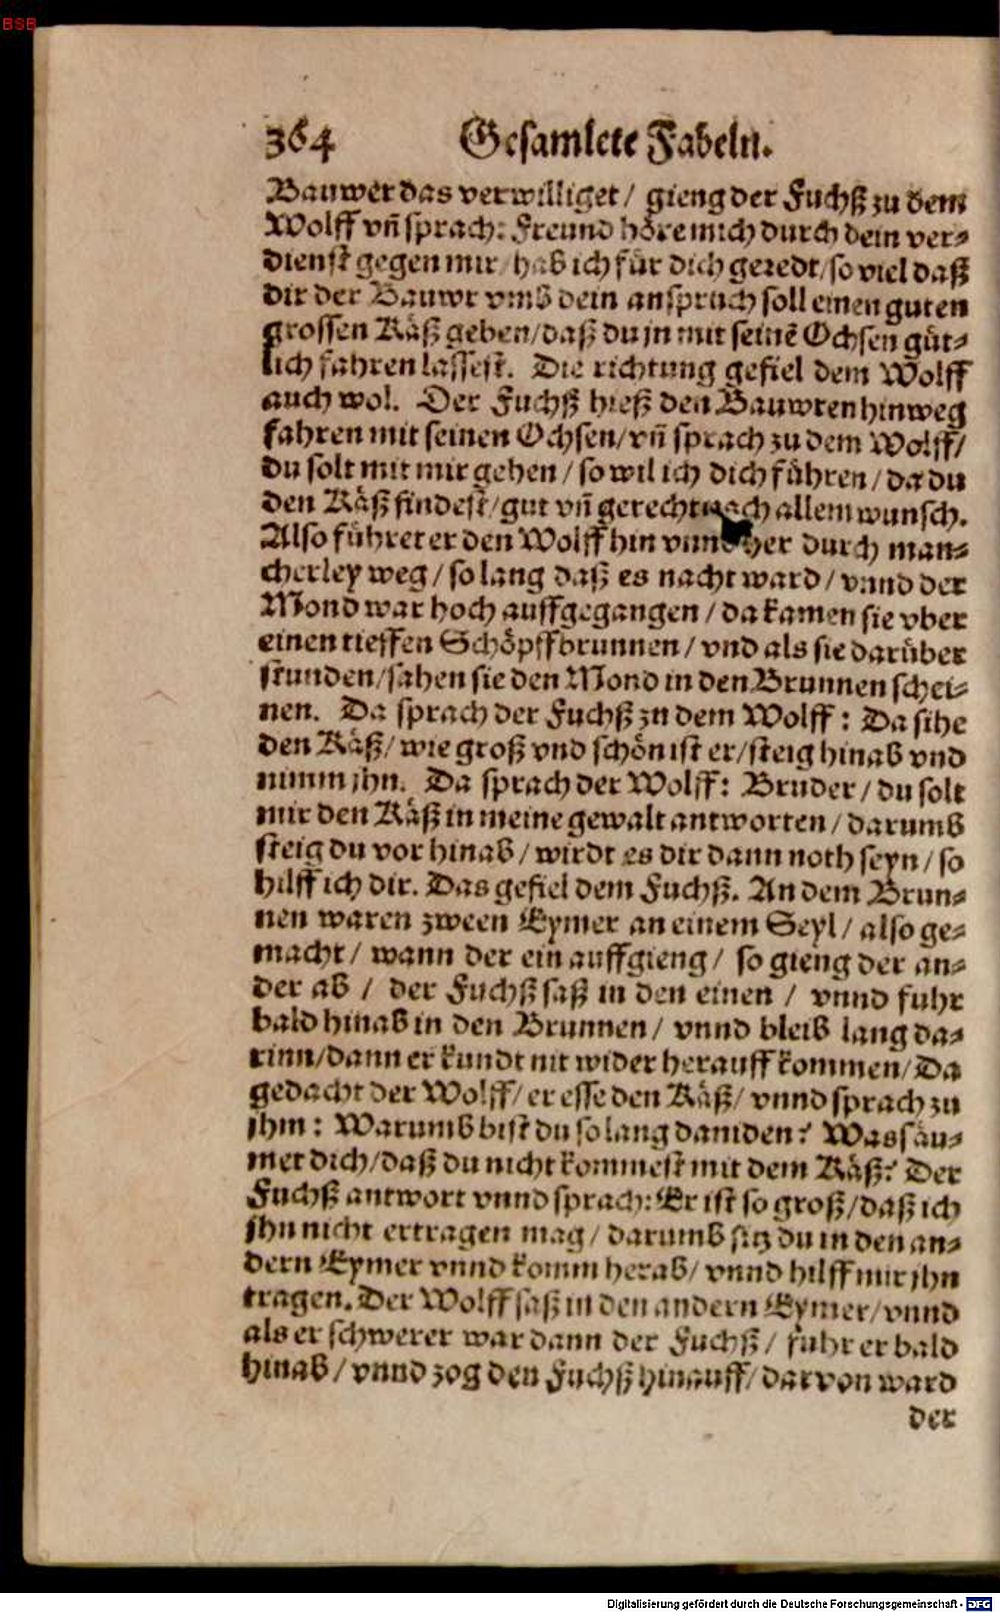 BSB
364 Gesamlete Fabeln.
Bauwer das verwilliget / gieng der Fuchß zu dem
Wolff vñ sprach: Freund höre mich durch dein ver-
dienst gegen mir / hab ich für dich geredt / so viel daß
dir der Bauwr vmb dein anspruch soll einen guten
grossen Käß geben / daß du jn mit seinẽ Ochsen güt-
lich fahren lassest. Die richtung gefiel dem Wolff
auch wol. Der Fuchß hieß den Bauwren hinweg
fahren mit seinen Ochsen / vñ sprach zu dem Wolff /
du solt mit mir gehen / so wil ich dich führen / da du
den Käß findest / gut vñ gerecht nach allem wunsch.
Also führet er den Wolff hin vnnd her durch man-
cherley weg / so lang daß es nacht ward / vnnd der
Mond war hoch auffgegangen / da kamen sie vber
einen tieffen Schöpffbrunnen / vnd als sie darüber
stunden / sahen sie den Mond in den Brunnen schei-
nen. Da sprach der Fuchß zu dem Wolff: Da sihe
den Käß / wie groß vnd schön ist er / steig hinab vnd
nimm jhn. Da sprach der Wolff: Bruder / du solt
mir den Käß in meine gewalt antworten / darumb
steig du vor hinab / wirdt es dir dann noth seyn / so
hilff ich dir. Das gefiel dem Fuchß. An dem Brun-
nen waren zween Eymer an einem Seyl / also ge-
macht / wann der ein auffgieng / so gieng der an-
der ab / der Fuchß saß in den einen / vnnd fuhr
bald hinab in den Brunnen / vnnd bleib lang da-
rinn / dann er kundt nit wider herauff kommen / Da
gedacht der Wolff / er esse den Käß / vnnd sprach zu
jhm: Warumb bist du so lang daniden? Was säu-
met dich / daß du nicht kommest mit dem Käß? Der
Fuchß antwort vnnd sprach: Er ist so groß / daß ich
jhn nicht ertragen mag / darumb sitz du in den an-
dern Eymer vnnd komm herab / vnnd hilff mir jhn
tragen. Der Wolff saß in den andern Eymer / vnnd
als er schwerer war dann der Fuchß / fuhr er bald
hinab / vnnd zog den Fuchß hinauff / darvon ward
der
Digitalisierung gefördert durch die Deutsche Forschungsgemeinschaft - DFG